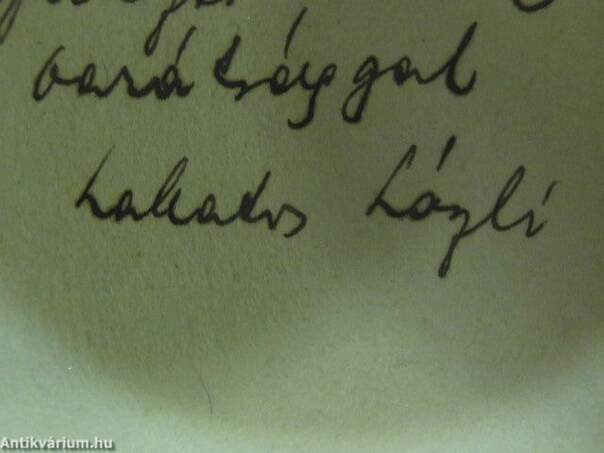 barátsággal
Lakatos László
Antikvárium.hu